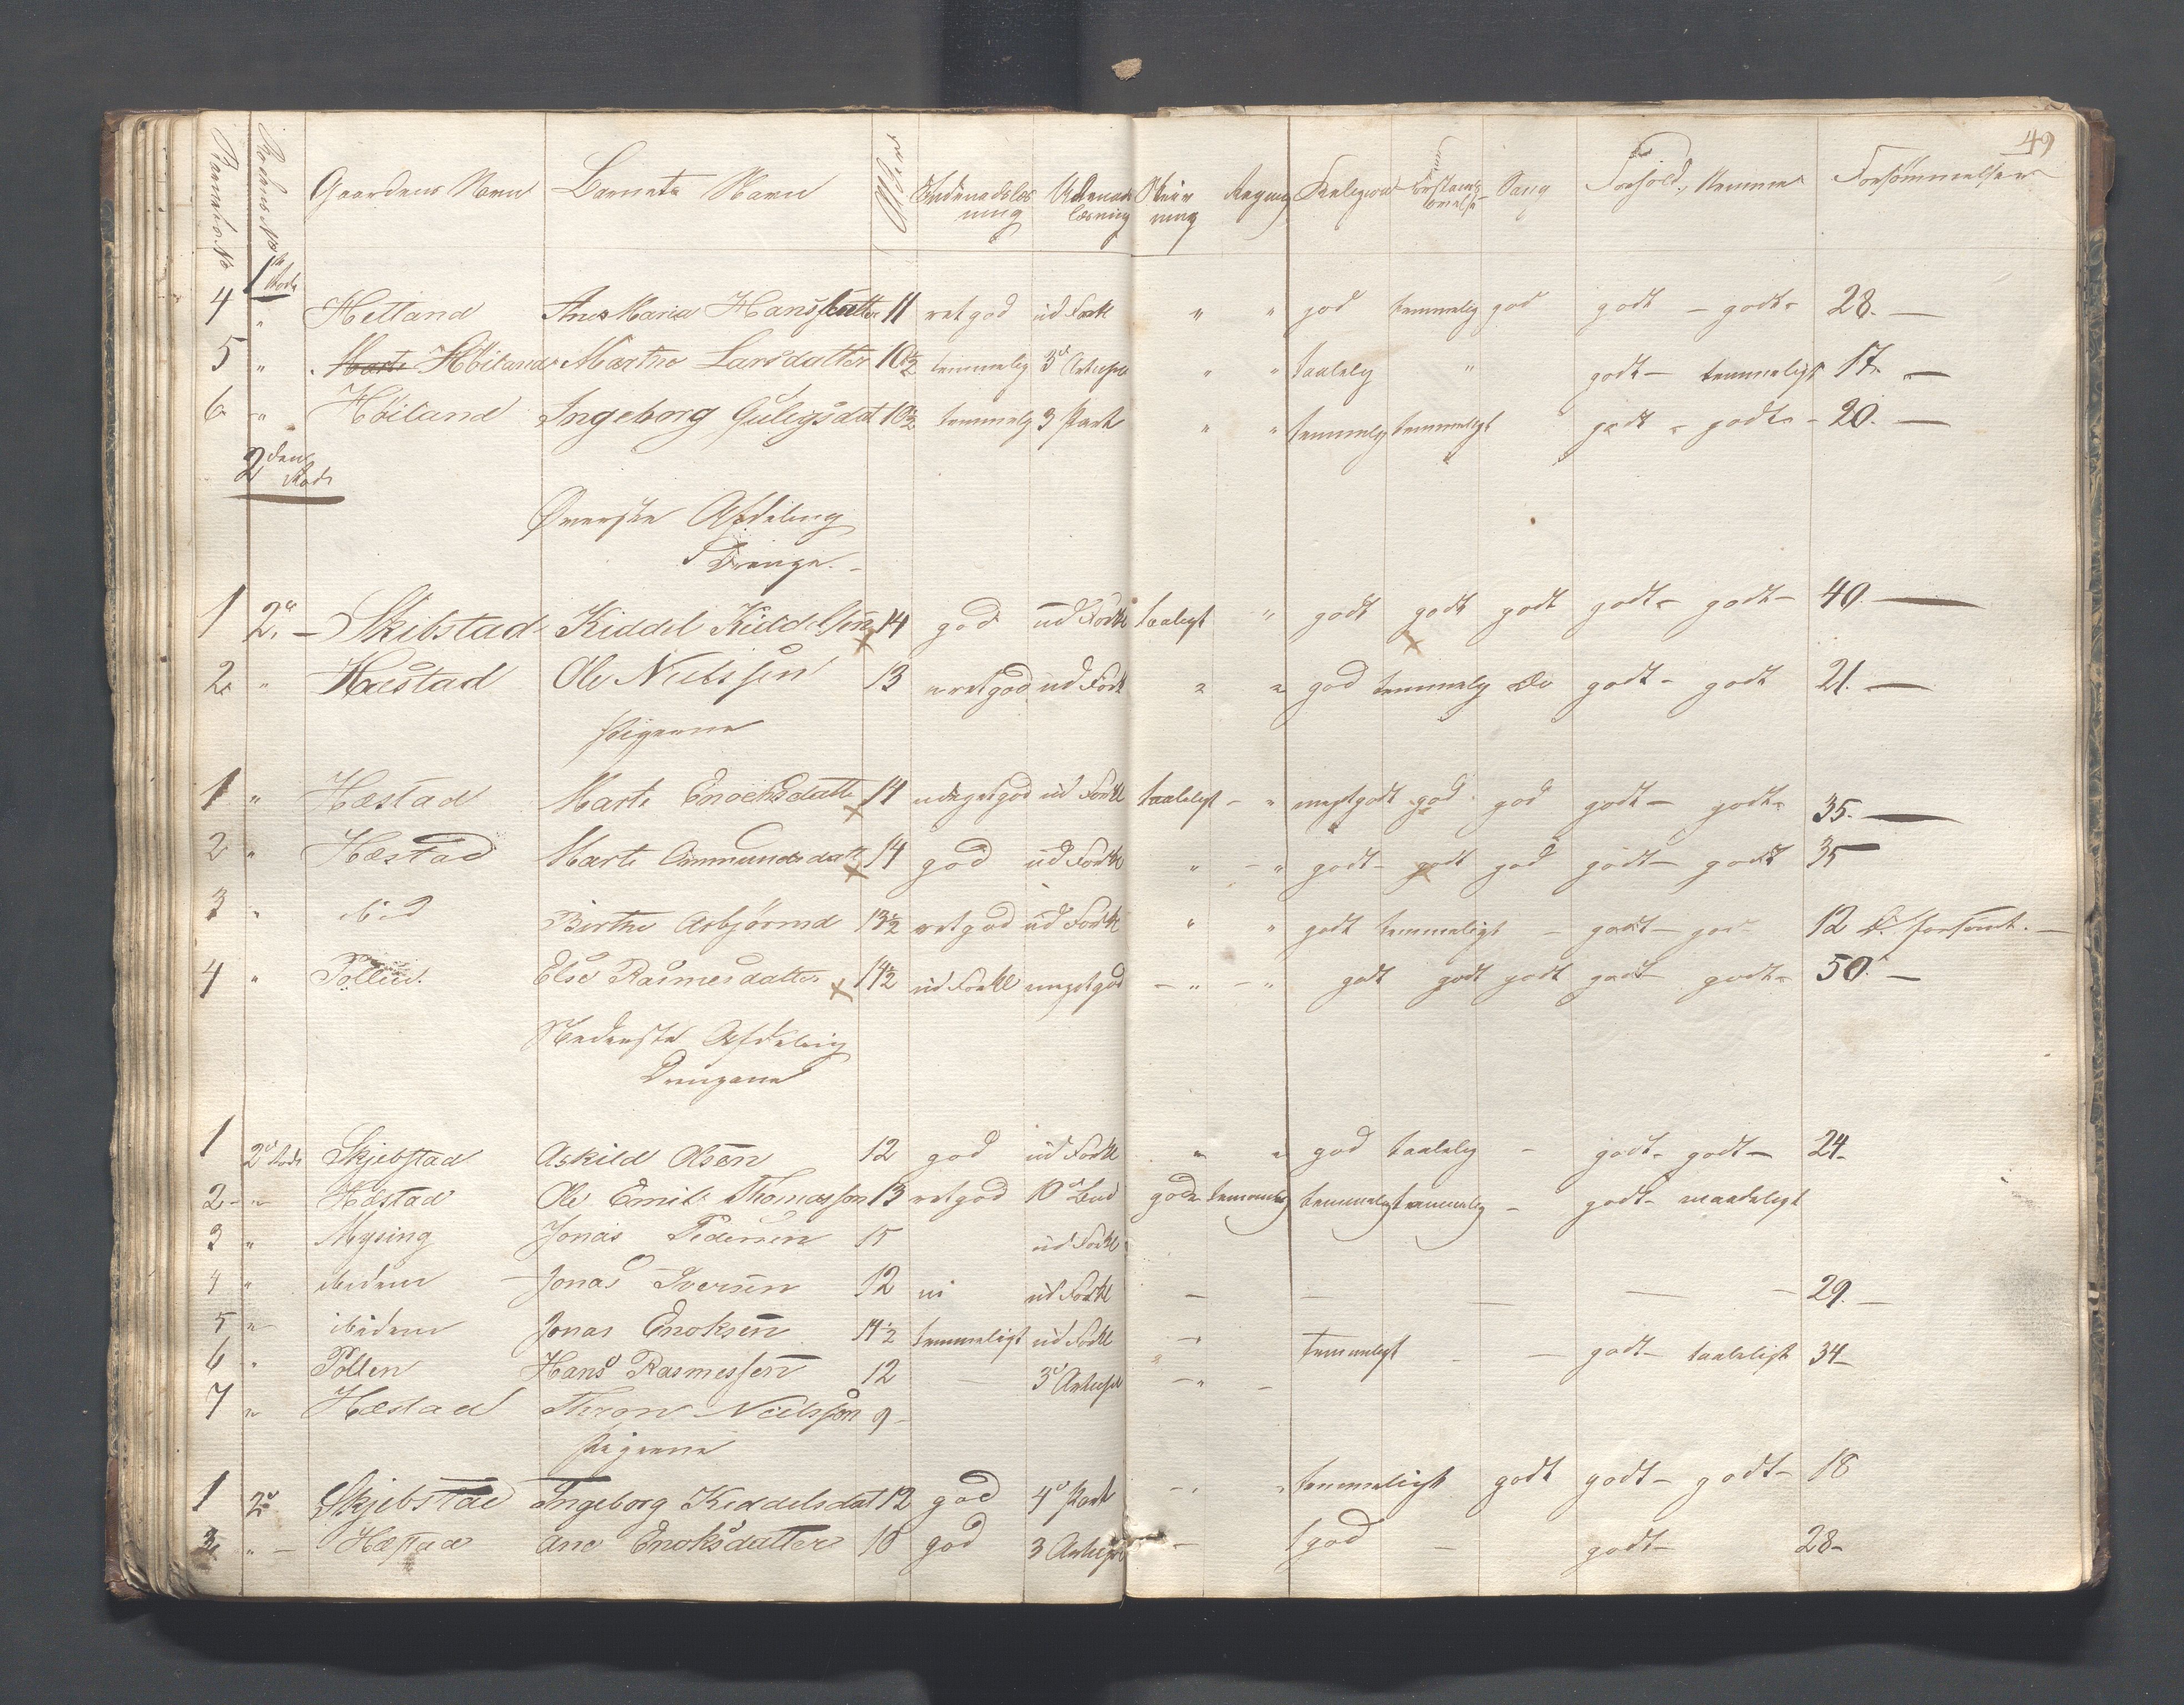 49
Barnets No Rodens No Gaardens Navn Barnets Navn Alder Indenadslæsning Udenadslæsning Skrivning Regning Religion Forstandsøvelse Sang Forhold, Nemme Forsømmelser
1ste Rode
4 " Hetland Ane Maria Hansdatter 11 retgod ud Forkl " " god temmelig god godt - godt - 28. -
5 " Høiland Marthe Larsdatter 10½ temmelig 3d Artikel " " taalelig " godt - temmeligt 17. -
6 " Høiland Ingeborg Gulegsdat 10½ temmelig 3 Part " " temmelig temmeligt godt - godt - 20. -
2den Rode
Øverste Afdeling
Drenge. -
1 2d. - Skibstad Kiddel Kiddelsen 14 god ud Forkl taaligt " godt godt godt godt - godt - 40. -
2. " Hæstad Ole Nielssen 13 retgod ud Forkl " " god temmelig do godt - godt 21. -
Pigerne
1 " Hæstad Marte Enochsdatte 14 meget god ud Forkl taaleligt - " meget godt god god godt - godt - 35. -
2 " Hæstad Marte Ommundsdatt 14 god ud Forkl " - " godt - godt god godt - godt 35
3 " ibid Birthe Asbjørnsd 13½ retgod ud Forkl " " godt temmeligt - godt - god 12 forsømt. -
4 " Pollen Else Rasmesdatter 14½ ud Forkl meget god - " - " godt godt godt godt godt - 50. -
Nederste Afdeling
Drengene
1 2d Rode Skjebstad Askild Olsen 12 god ud Forkl " " god taalelig - godt - godt - 24 -
2 - " Hæstad Ole Emil Thomassen 13 retgod 10d Bud godt temmelig temmelig temmelig - godt - maadeligt
3 " Mysing Jonas Pedersen 15 ud Forkl
4 " ibidem Jonas Iversen 12 ud Forkl - - - - - 29. -
5 " ibidem Jonas Enoksen 14½ temmeligt ud Forkl - temmeligt - - godt - taaleligt 34 -
6 " Pollen Hans Rasmessen 12 - 3d Artikel - " -
7 " Hæstad Theron Nielsson 9 -
Pigerne
1 2d Skjebstad Ingeborg Kiddelsdat 12 god 4d Part - " " temmeligt godt godt - godt - 18
3. " - Hæstad Ane Enoksdatter 10 god 3 Artikel - god - godt - 28 -